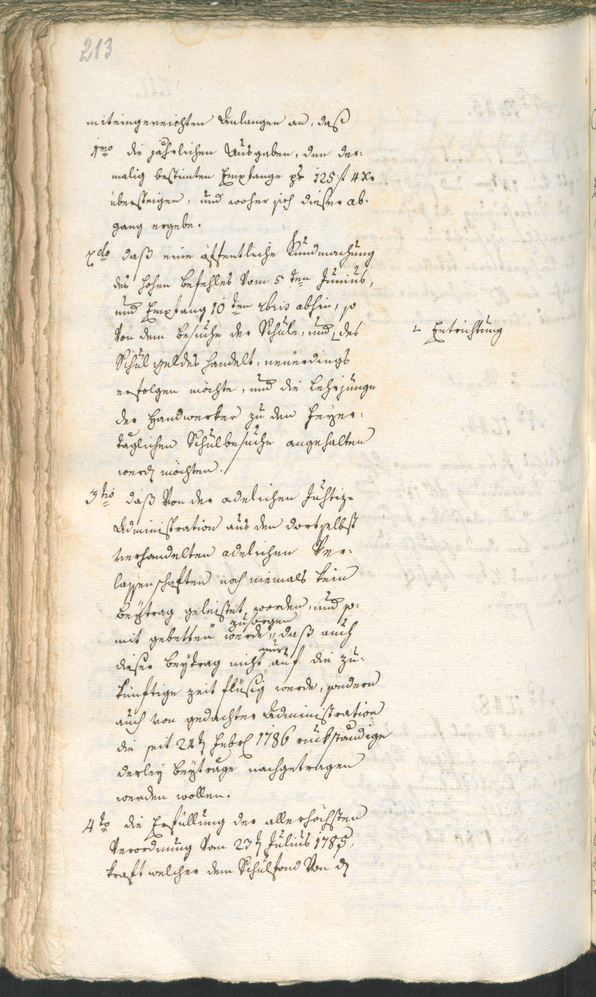 213
miteingereichten Anlangen an, daß
1mo die jährlichen Ausgaben, den der-
malig bestimten Empfange pr 125 f 4 x.
übersteigen, und woher sich dieser ab-
gang ergebe.
2do daß eine öffentliche Kundmachung
des hohen Befehles vom 5ten Junius,
und Empfang 10ten abhin, so
von dem Besuche der Schule, und ⌞ des
⌞ Entrichtung
Schulgeldes handelt, neuerdings
erfolgen möchte, und die Lehrjunge
der Handwerker zu den Feyer-
täglichen Schulbesuche angehalten
werdn möchten.
3tio daß von der adelichen Justiz-
Administration aus den dortselbst
verhandelten adelichen Ver-
lassenschaften noch niemals kein
Beytrag geleistet worden, und so-
mit gebetten werde zusorgen, daß auch
dieser Beytrag nicht nur auf die zu-
künftige zeit flüßig werde, sondern
auch von gedachter Administration
die seit 24n Febr 1786 rückständige
derley Beyträge nachgetragen
werden wollen.
4to die Erfüllung der allerhöchsten
Verordnung vom 23n Julius 1785,
kraft welcher dem Schulfond von dn